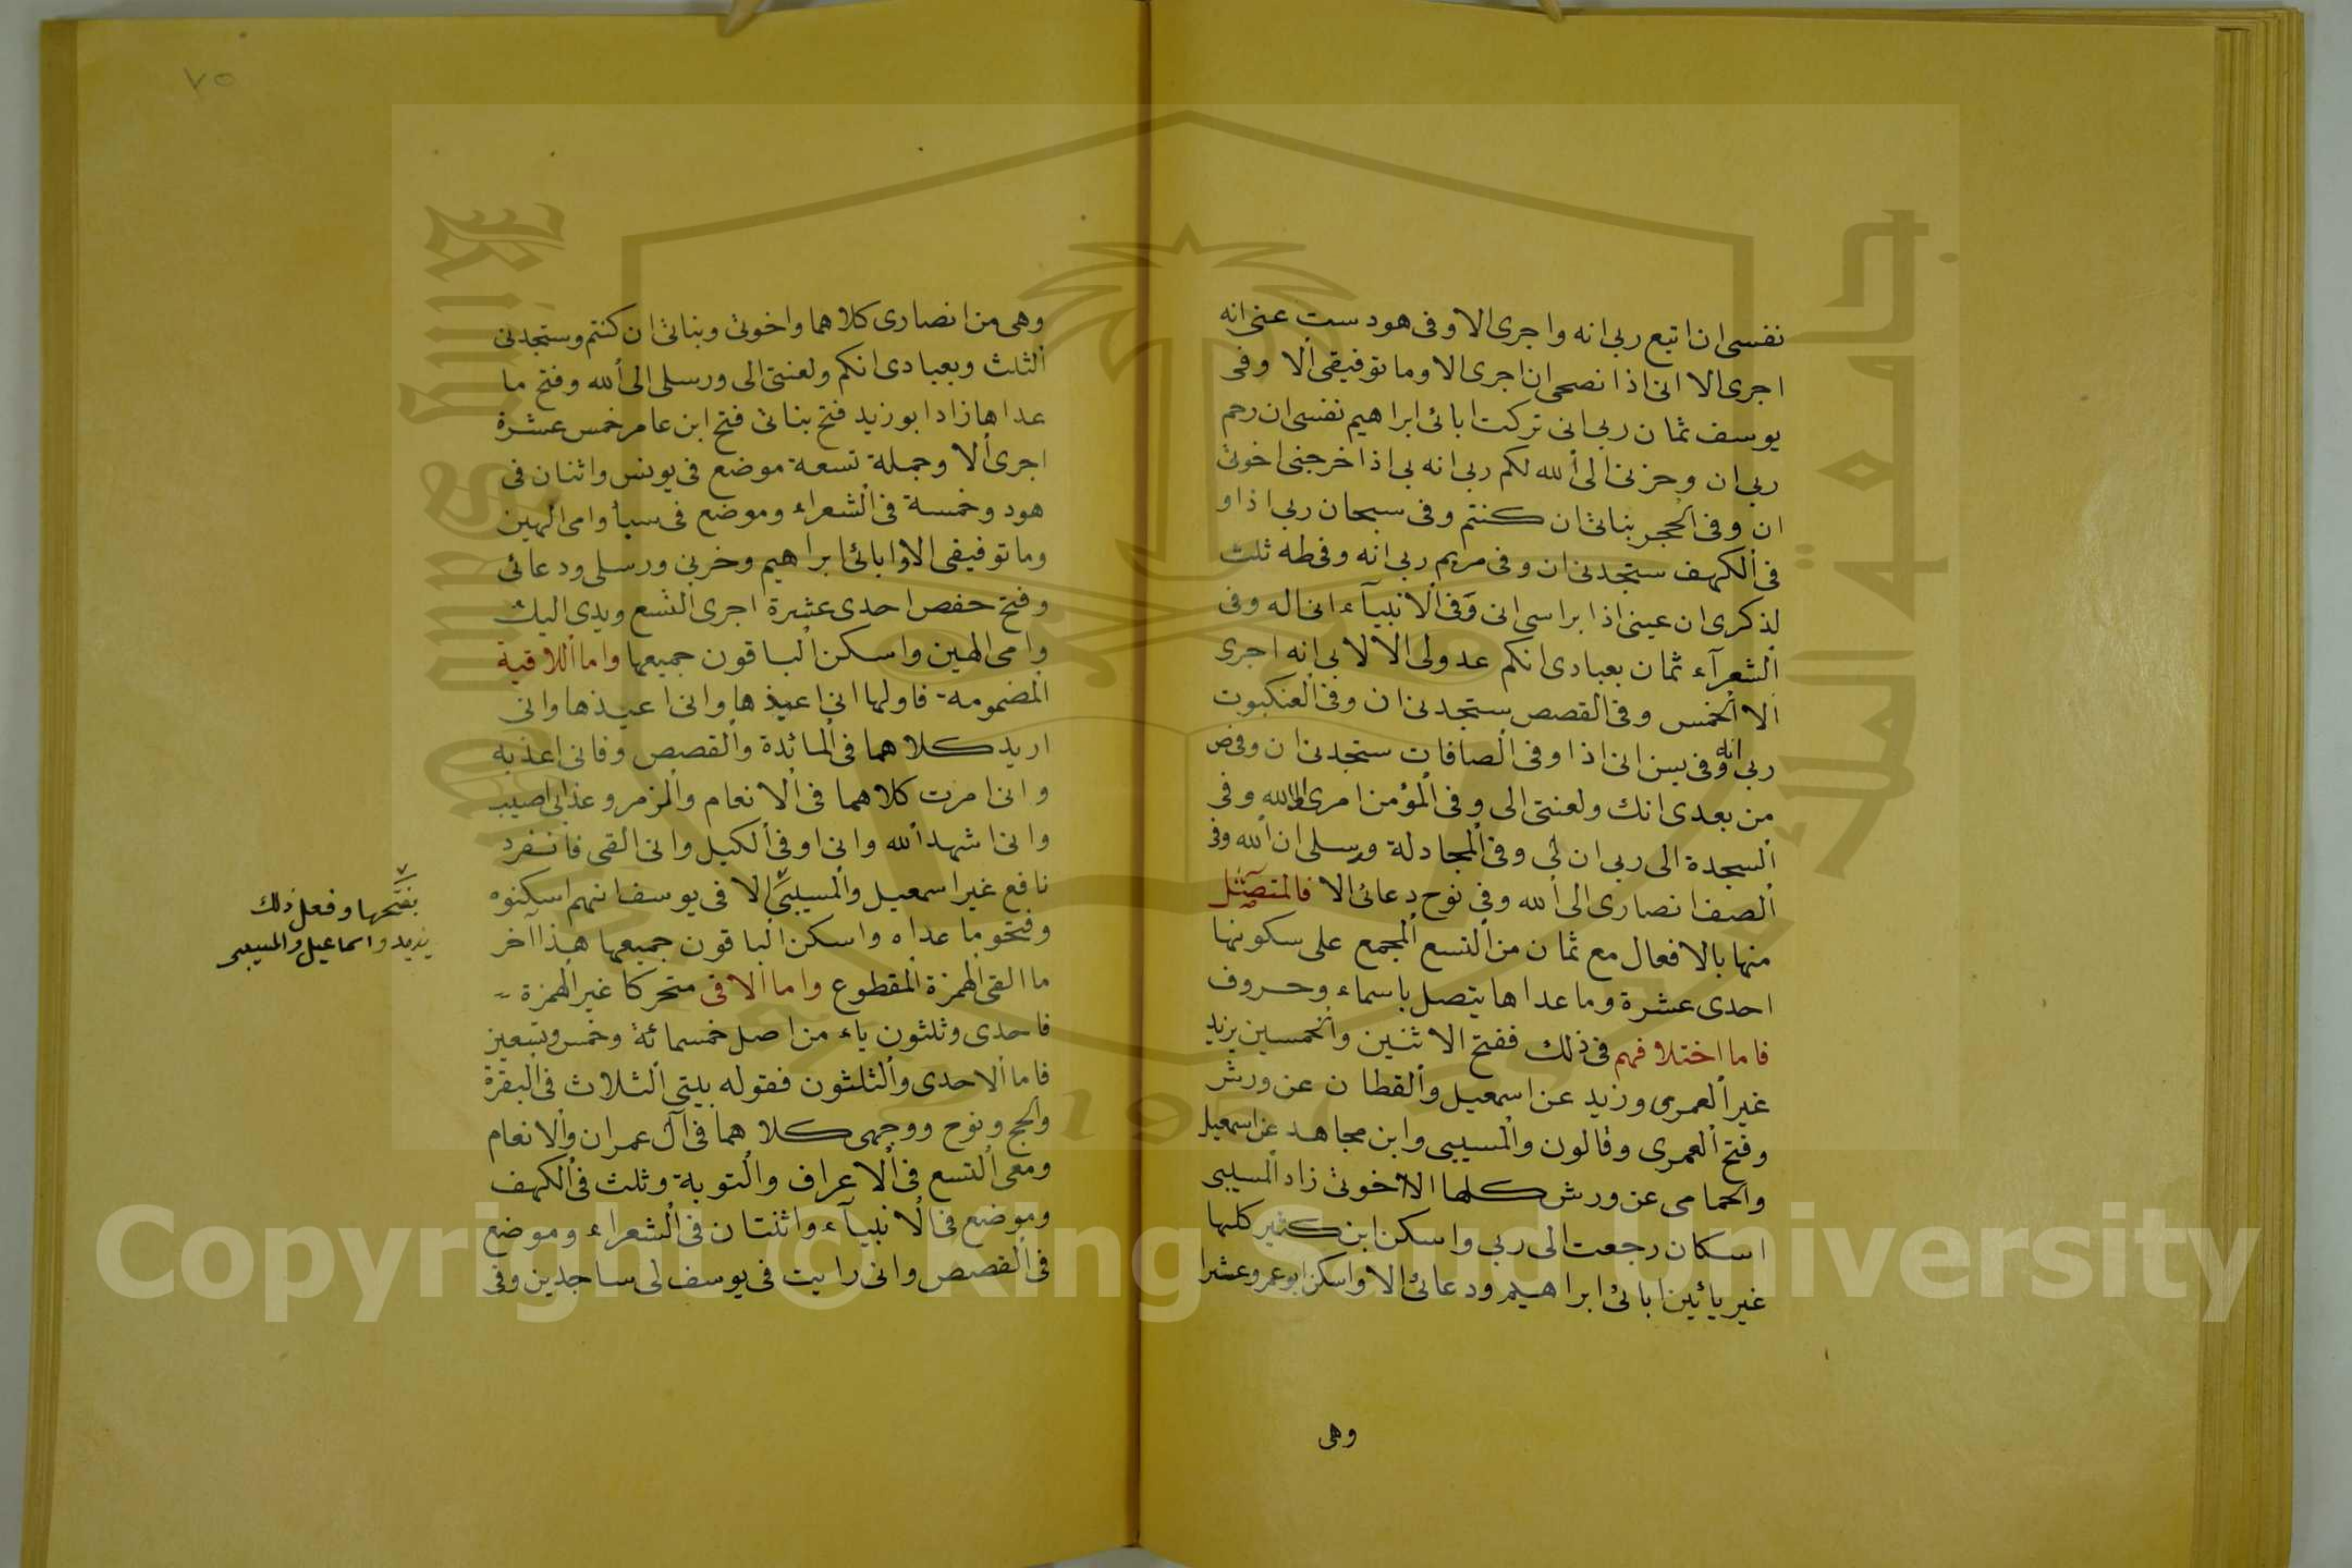 نفسى ان اتبع ربى انه واجرى الا وفى هود ست عنى انه
اجرى الا انى اذا نصحى ان اجرى الا وما توفيقى الا وفى
يوسف ثمان ربى انى تركت ابائى ابراهيم نفسى ان رحم
ربى ان وحزنى الى الله لكم ربى انه بى اذ اخرجنى اخوتى
ان وفى الحجر بناتى ان كنتم وفى سبحان ربى اذا و
فى الكهف ستجدنى ان وفى مريم ربى انه وفى طه ثلث
لذكرى ان عينى اذ ابراسى انى وفى الانبيآء انى اله وفى
الشعرآء ثمان بعبادى انكم عدولى الا لابى انه اجرى
الا الخمس وفى القصص ستجدنى ان وفى العنكبوت
ربى انه وفى يسن انى اذا وفى الصافات ستجدنى ان وفى ص
من بعدى انك ولعنتى الى وفى المؤمن امرى الى الله وفى
السجدة الى ربى ان لى وفى المجادلة ورسلى ان الله وفى
الصف انصارى الى الله وفى نوح دعائى الا فالمتصل
منها بالافعال مع ثمان من التسع المجمع على سكونها
احدى عشرة وما عداها يتصل باسماء وحروف
فاما اختلافهم فى ذلك ففتح الاثنين والخمسين يزيد
غير العمرى وزيد عن اسمعيل والقطان عن ورش
وفتح العمرى وقالون والمسيبى وابن مجاهد عن اسمعيل
والحمامى عن ورش كلها الا اخوتى زاد المسيبى
اسكان رجعت الى ربى واسكن ابن كثير كلها
غير يائين ابائى ابراهيم ودعائى الا واسكن ابو عمرو عشرا
وهى
٧٥
وهى من انصارى كلاهما واخوتى وبناتى ان كنتم وستجدنى
الثلث وبعبادى انكم ولعنتى الى ورسلى الى الله وفتح ما
عداها زاد ابو زيد فتح بناتى فتح ابن عامر خمس عشرة
اجرى الا وجملة تسعة موضع فى يونس واثنان فى
هود وخمسة فى الشعراء وموضع فى سبأ وامى الهين
وما توفيقى الا وابائى ابراهيم وحزنى ورسلى ودعائى
وفتح حفص احدى عشرة اجرى التسع ويدى اليك
وامى الهين واسكن الباقون جميعها واما اللاقية
المضمومه فاولها انى اعيذها وانى اعيذها وانى
اريد كلاهما فى المائدة والقصص وفانى اعذبه
وانى امرت كلاهما فى الانعام والزمر وعذابى اصيب
وانى اشهد الله وانى اوفى الكيل وانى القى فانفرد
نافع غير اسمعيل والمسيبى الا فى يوسف انهم اسكنوه
وفتحوا ما عداه واسكن الباقون جميعها هذا آخر
ما القى الهمزة المقطوع واما الا فى متحركا غير الهمزة
فاحدى وثلثون ياء من اصل خمسمائة وخمس وتسعين
فاما الاحدى والثلثون فقوله بيتى الثلاث فى البقرة
والحج ونوح ووجهى كلاهما فى آل عمران والانعام
ومعى التسع فى الاعراف والتوبة وثلث فى الكهف
وموضع فى الانبيآء واثنتان فى الشعراء وموضع
فى القصص وانى رايت فى يوسف لى ساجدين وفى
بفتحها وفعل ذلك
يزيد واسماعيل والمسيبى
جامعة الملك سعود
King Saud University
1957
Copyright © King Saud University